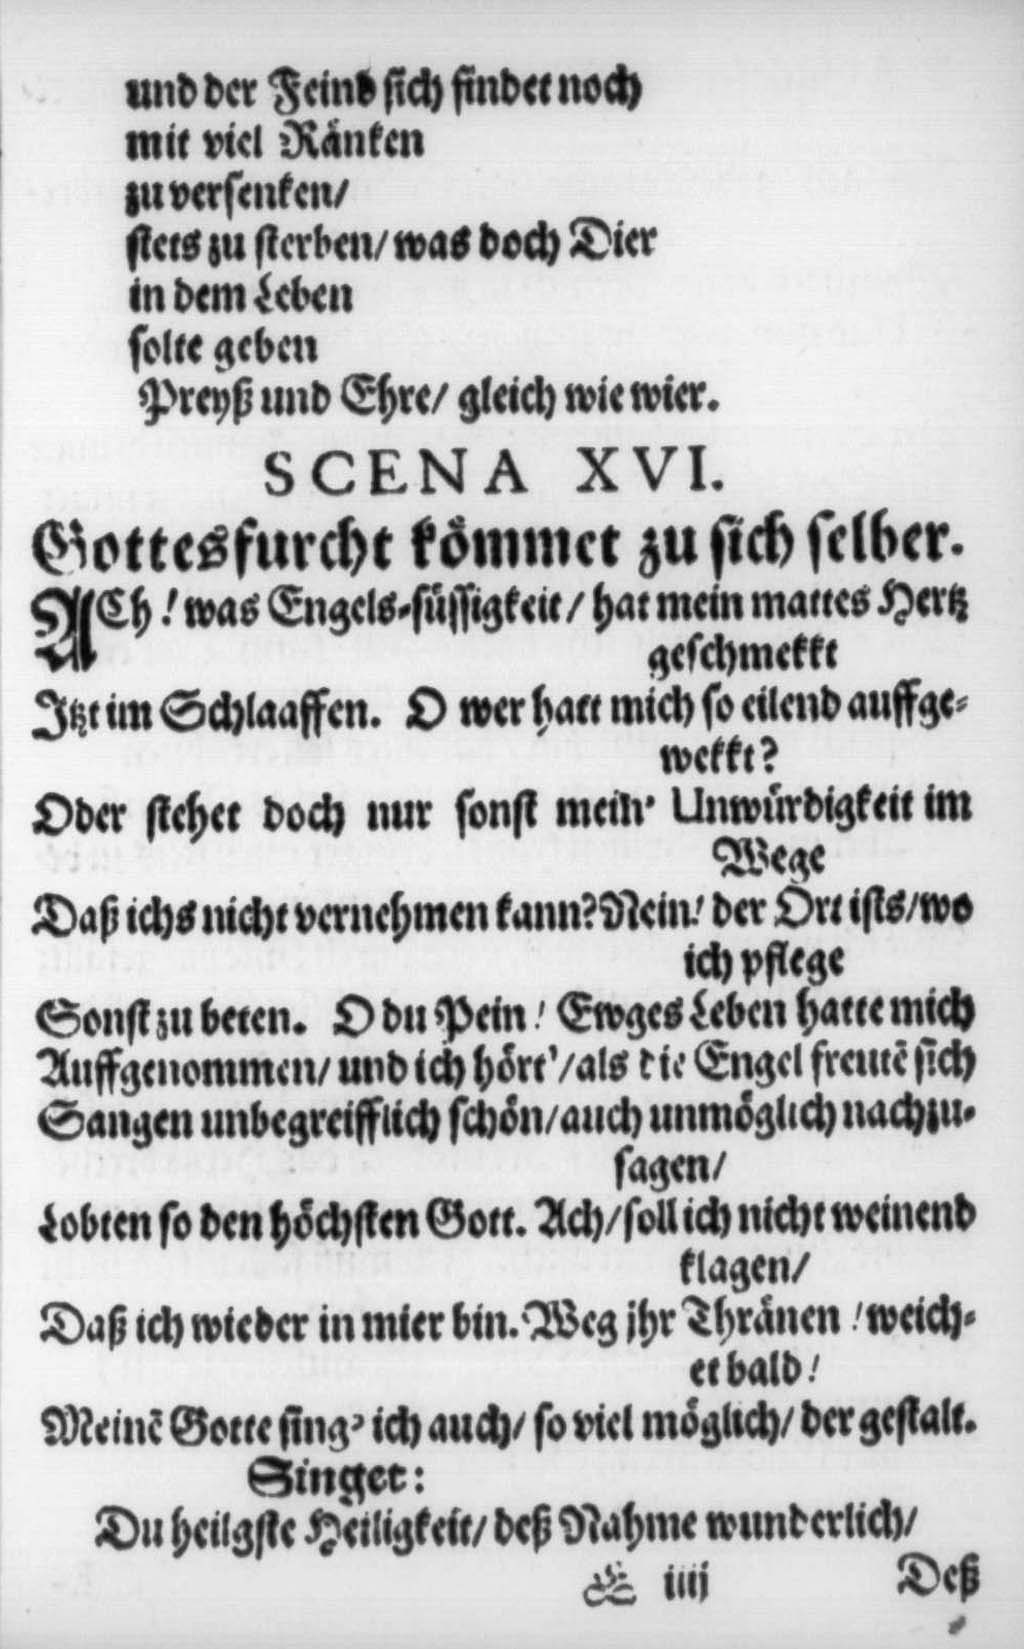 und der Feind sich findet noch
mit viel Ränken
zu versenken/
stets zu sterben/ was doch Dier
in dem Leben
solte geben
Preyß und Ehre/ gleich wie wier.
SCENA XVI.
Gottesfurcht kömmet zu sich selber.
ACh! was Engels-süssigkeit/ hat mein mattes Hertz
geschmekkt
Jtzt im Schlaaffen. O wer hatt mich so eilend auffge-
wekkt?
Oder stehet doch nur sonst mein' Unwürdigkeit im
Wege
Daß ichs nicht vernehmen kann? Nein! der Ort ists/ wo
ich pflege
Sonst zu beten. O du Pein! Ewges Leben hatte mich
Auffgenommen/ und ich hört'/ als die Engel freutẽ sich
Sangen unbegreifflich schön/ auch unmöglich nachzu-
sagen/
Lobten so den höchsten Gott. Ach/ soll ich nicht weinend
klagen/
Daß ich wieder in mier bin. Weg jhr Thränen! weich-
et bald!
Meinẽ Gotte sing' ich auch/ so viel möglich/ der gestalt.
Singet:
Du heilgste Heiligkeit/ deß Nahme wunderlich/
iiij Deß